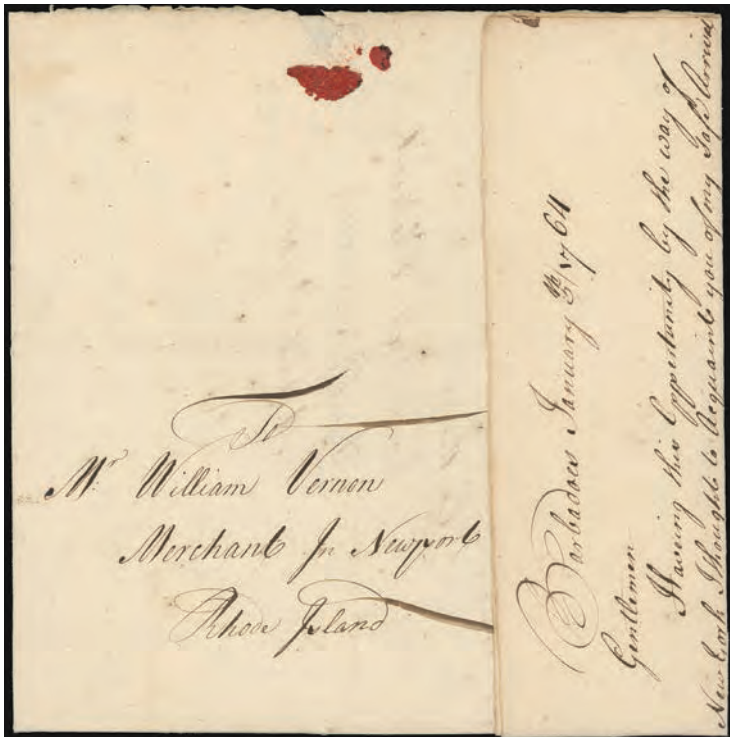 To
Mr. William Vernon
Merchant In Newport
Rhode Island
Barbadoes January 5th/1764
Gentlemen
Having this Oppertunity by the way of
New York I thought to Acquaint you of my Safe Arrival